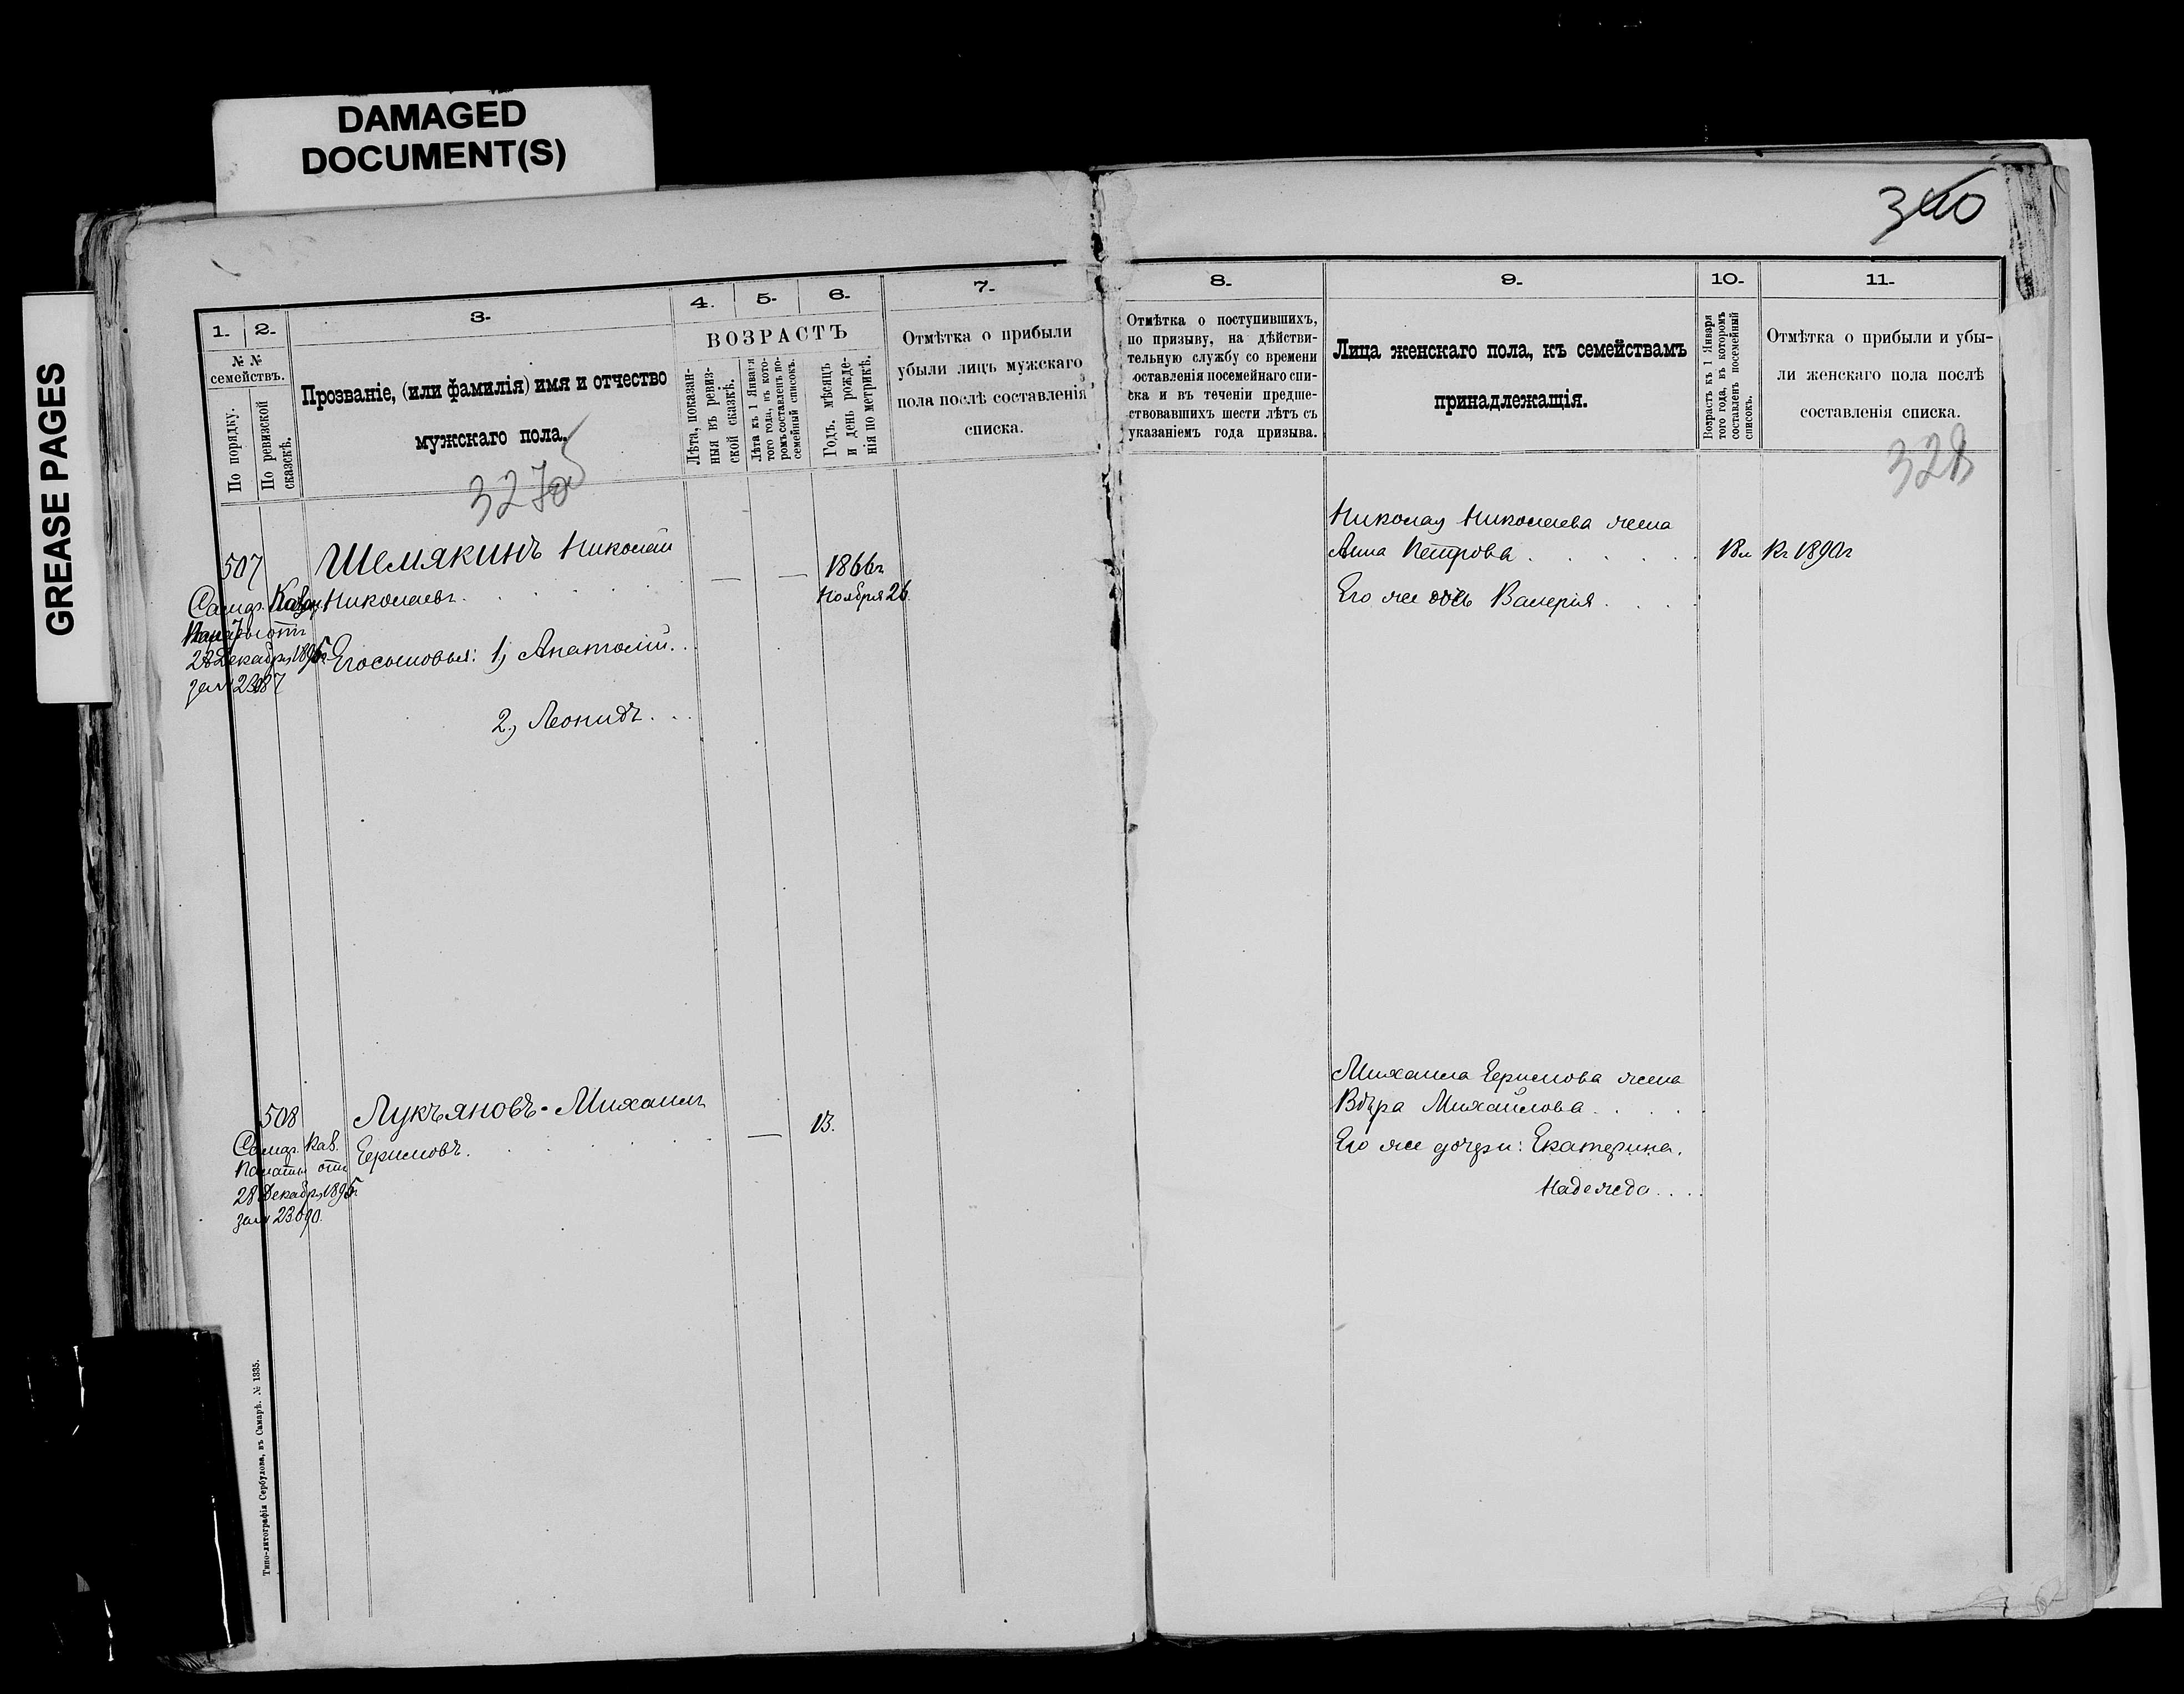 DAMAGED
DOCUMENT(S)
GREASE PAGES
340
1.
2.
3.
4.
5.
6.
7.
№ №
семействъ.
По порядку.
По ревизской
сказкѣ.
Прозваніе, (или фамилія) имя и отчество
мужскаго пола.
ВОЗРАСТЪ
Лѣта, показан-
ныя въ ревиз-
ской сказкѣ.
Лѣта къ 1 Января
того года, въ кото-
ромъ составленъ по-
семейный списокъ.
Годъ, мѣсяцъ
и день рожде-
нія по метрикѣ.
Отмѣтка о прибыли
убыли лицъ мужскаго
пола послѣ составленія
списка.
507
Самар. Казен.
Палаты отъ
28 Декабр. 1895г
за № 23087
Шемякинъ Николай
Николаевъ
Его сыновья: 1, Анатолій
2, Леонидъ
—
—
1866г
Ноября 26
508
Самар. Каз.
Палаты отъ
28 Декабр. 1895г
за № 23090.
Лукъяновъ - Михаилъ
Ефимовъ
—
13.
Типо-литографія Сербулова, въ Самарѣ. № 1335.
8.
9.
10.
11.
Отмѣтка о поступившихъ,
по призыву, на дѣйстви-
тельную службу со времени
оставленія посемейнаго спи-
ска и въ теченіи предше-
ствовавшихъ шести лѣтъ съ
указаніемъ года призыва.
Лица женскаго пола, къ семействамъ
принадлежащія.
Возрастъ къ 1 Января
того года, въ которомъ
составленъ посемейный
списокъ.
Отмѣтка о прибыли и убы-
ли женскаго пола послѣ
составленія списка.
328
Николая Николаева жена
Анна Петрова
18л
Къ 1890г
Его же дочь Валерія
Михаила Ефимова жена
Вѣра Михайлова
Его же дочери: Екатерина.
Надежда